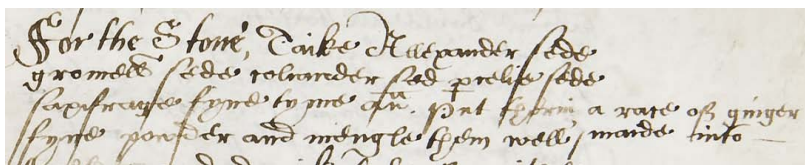 For the Stone, Taike Allexander sede
gromell sede coliander sed pselie sede
saxifrage fyne tyme an. Put therin a race off ginger
fyne powder and mengle them well, maide into